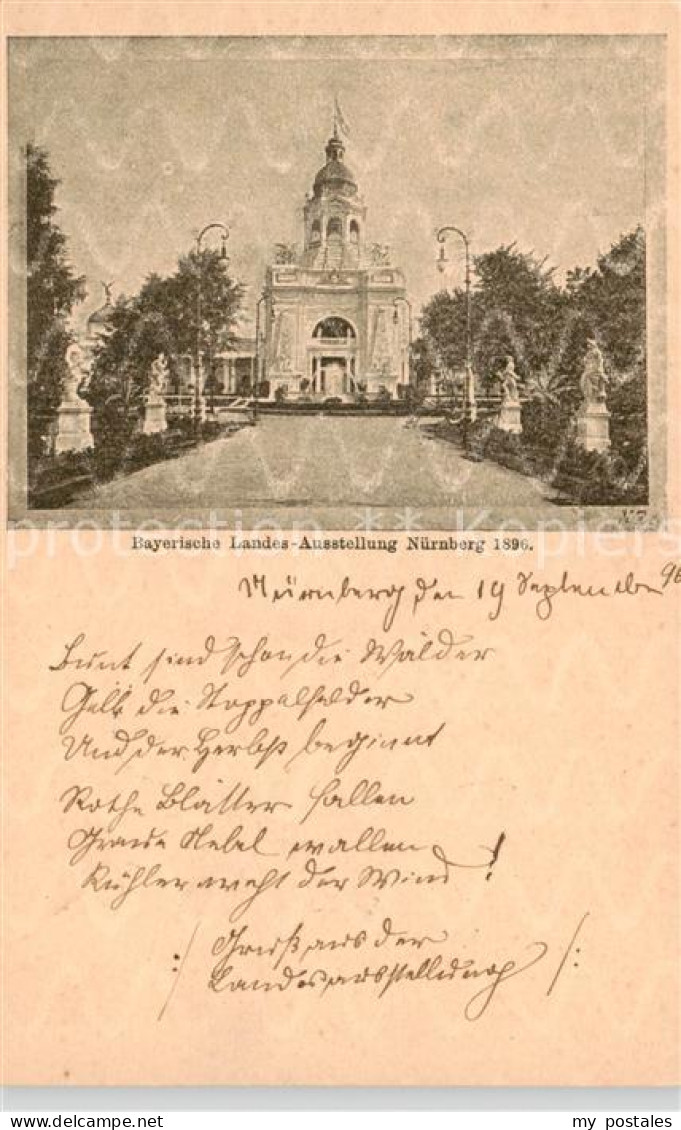 Bayerische Landes-Ausstellung Nürnberg 1896.
Nürnberg den 19 September 96
Bunt sind schon die Wälder
Gelb die Stoppelfelder
Und der Herbst beginnt
Rothe Blätter fallen
Graue Nebel wallen
Kühler weht der Wind!
/: Gruß aus der
Landesausstellung :/
postcard-international ** Secure-Kopierschutz
www.delcampe.net
my_postales